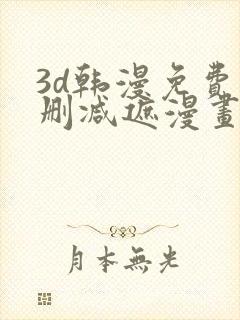 3d韩漫免費
删减遮漫畫
月本無光